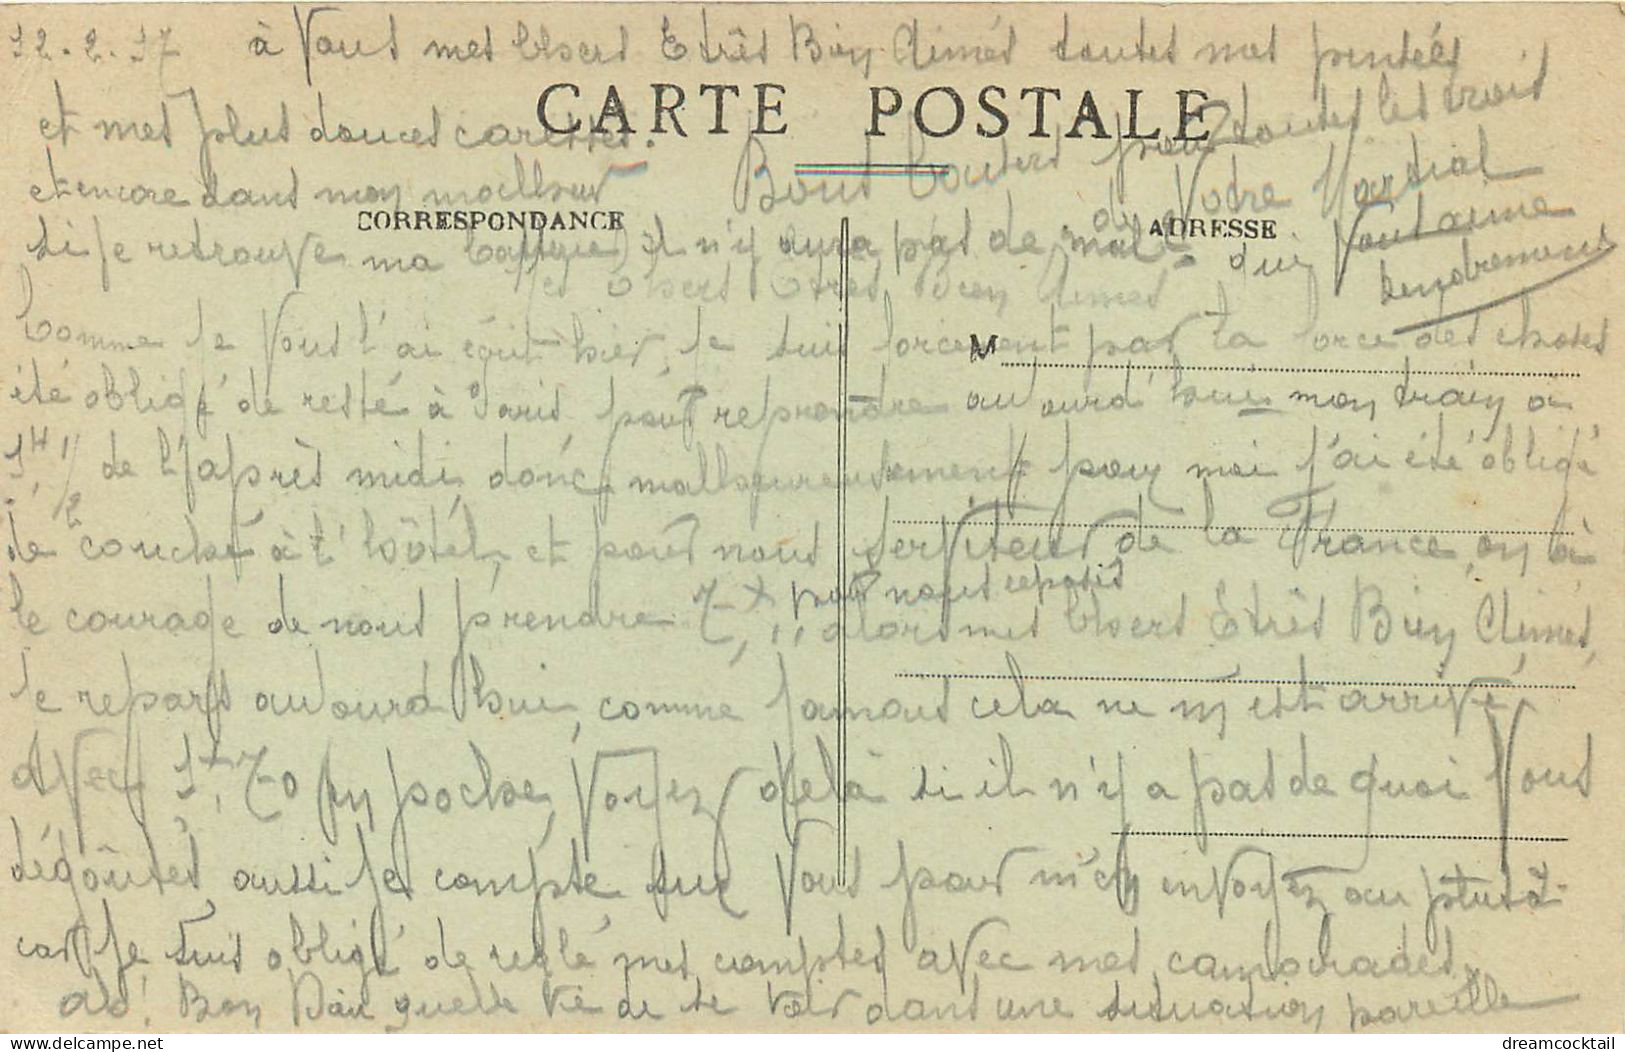 12.2.17 à Vous mes Chers Etrês Bien Aimés toutes mes pensées
et mes plus douces caresses.
CARTE POSTALE
et encore dans mon malheur
Bons baisers pour toutes les trois
de Votre Martial
qui Vous aime
tendrement
CORRESPONDANCE
ADRESSE
si je retrouve ma il n'y aura pas de mal
Mes Chers Etres Bien Aimés
Comme je Vous l'ai écrit hier, je suis forcement par la force des choses
M
été obligé de resté à Paris pour reprendre aujourd'hui mon train à
1H 1/2 de l'après midi, donc malheureusement pour moi j'ai été obligé
de couché à l'hôtel, et pour nous serviteur de la France, on à
le courage de nous prendre 7f pour nous reposés
alors mes Chers Etrês Bien Aimés,
je repars aujourd'hui, comme jamais cela ne m'est arrivé,
avec 1f,70 en poche, Voyez delà si il n'y a pas de quoi Vous
dégoûtés, aussi je compte sur Vous pour m'en envoyez au plus tôt
car je suis obligé de reglé mes comptes avec mes camarades,
ah! Bon Dieu quelle vie de se voir dans une situation pareille
dreamcocktail